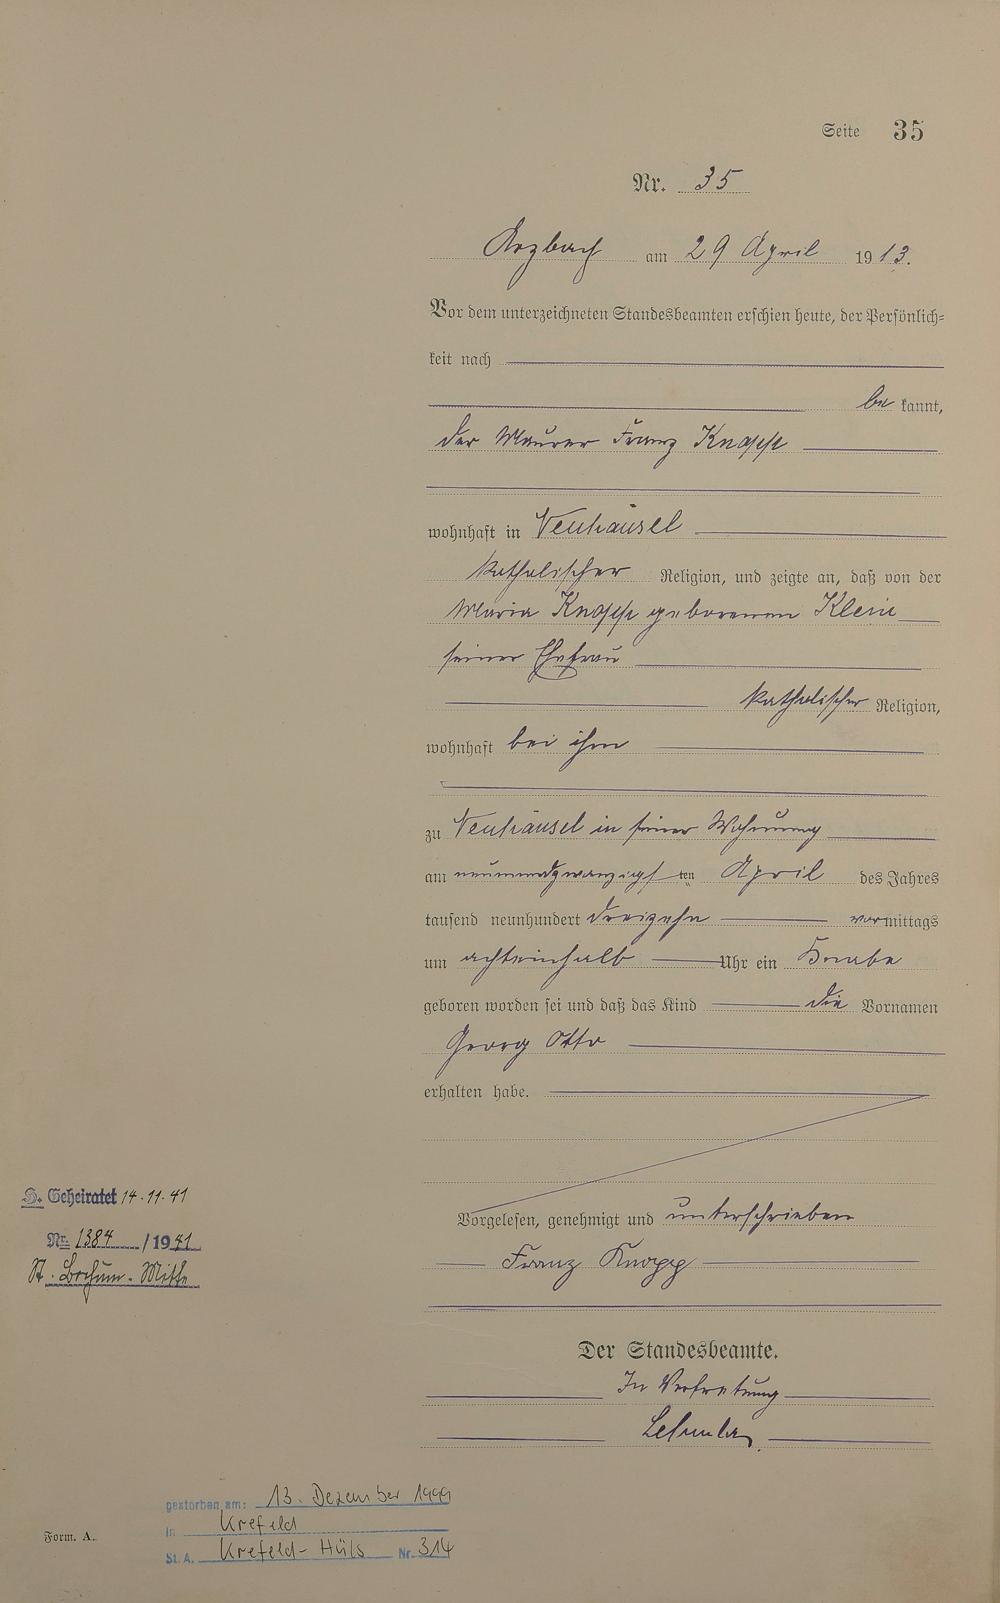 Seite 35
Nr. 35
Arzbach am 29 April 1913.
Vor dem unterzeichneten Standesbeamten erschien heute, der Persönlich=
keit nach
be kannt,
der Maurer Franz Knopp
wohnhaft in Neuhäusel
katholischer Religion, und zeigte an, daß von der
Maria Knopp geborenen Klein
seiner Ehefrau
katholischer Religion,
wohnhaft bei ihm
zu Neuhäusel in seiner Wohnung
am neunundzwanzigsten April des Jahres
tausend neunhundert dreizehn vormittags
um achteinhalb Uhr ein Knabe
geboren worden sei und daß das Kind die Vornamen
Georg Otto
erhalten habe.
Vorgelesen, genehmigt und unterschrieben
Franz Knopp
Der Standesbeamte.
In Vertretung
S. Geheiratet 14.11.41
Nr. 1384 / 1941
St. Bochum-Mitte
gestorben am: 13. Dezember 1999
in Krefeld
St. A. Krefeld-Hüls Nr. 314
Form. A.